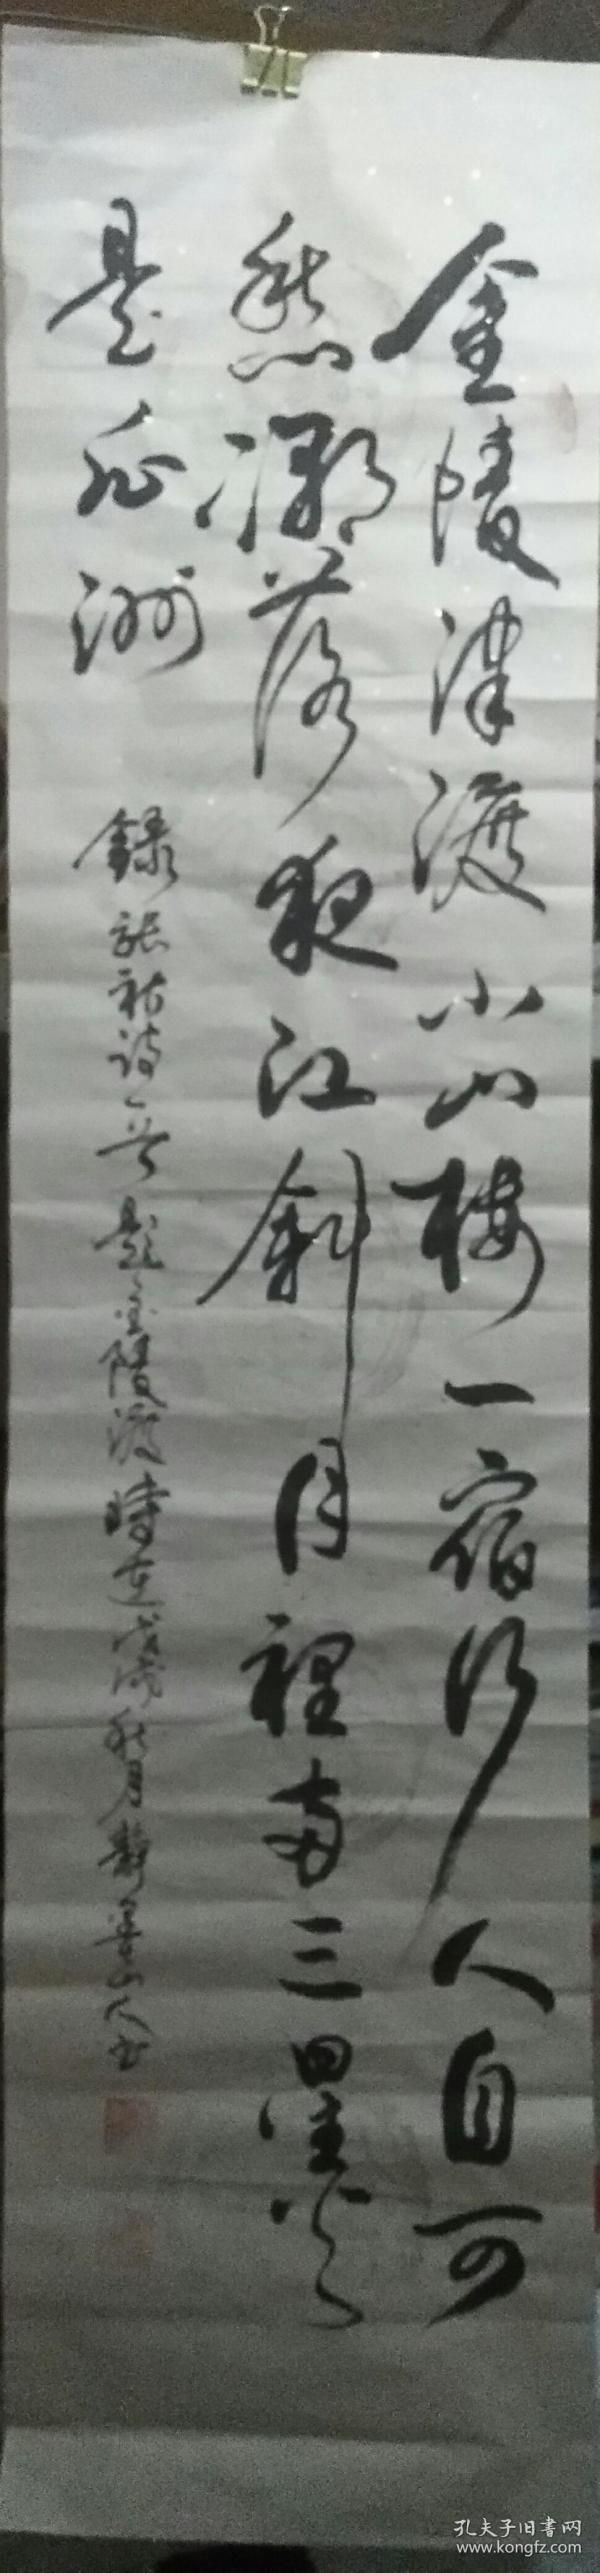 金陵津渡小山樓一宿行人自可
愁潮落夜江斜月裡兩三星火
是瓜洲
錄張祜詩一首題金陵渡時在戊戌秋月靜山人書
孔夫子旧書网
www.kongfz.com